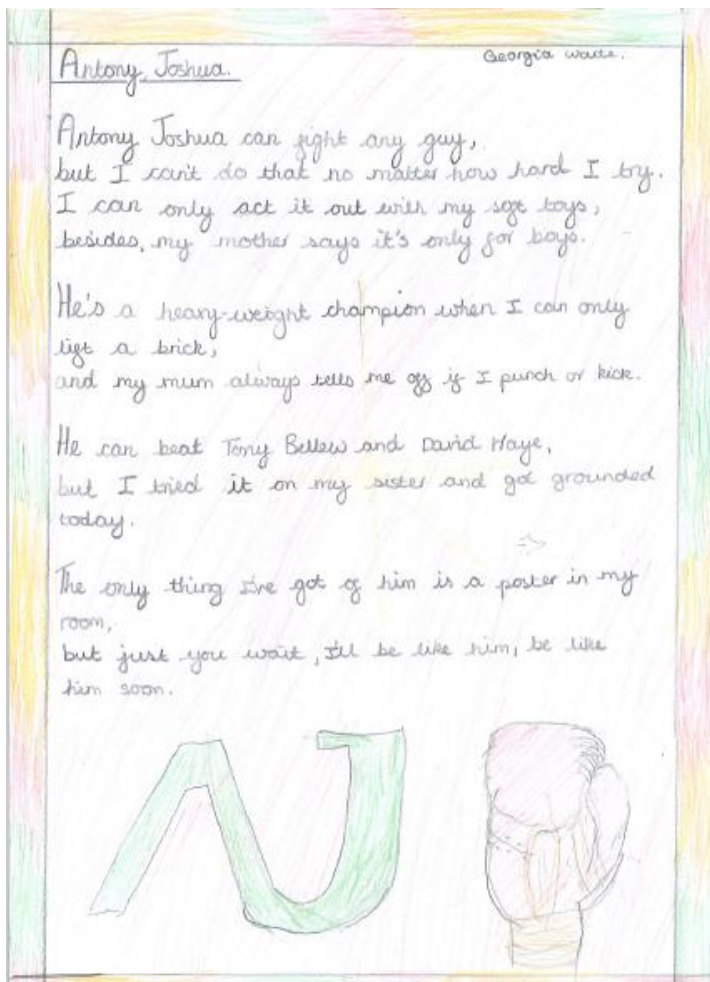 Antony Joshua.
Georgia Waite.
Antony Joshua can fight any guy,
but I can't do that no matter how hard I try.
I can only act it out with my soft toys,
besides, my mother says it's only for boys.
He's a heavy-weight champion when I can only
lift a brick,
and my mum always tells me off if I punch or kick.
He can beat Tony Bellew and David Haye,
but I tried it on my sister and got grounded
today.
The only thing I've got of him is a poster in my
room,
but just you wait, I'll be like him, be like
him soon.
AJ